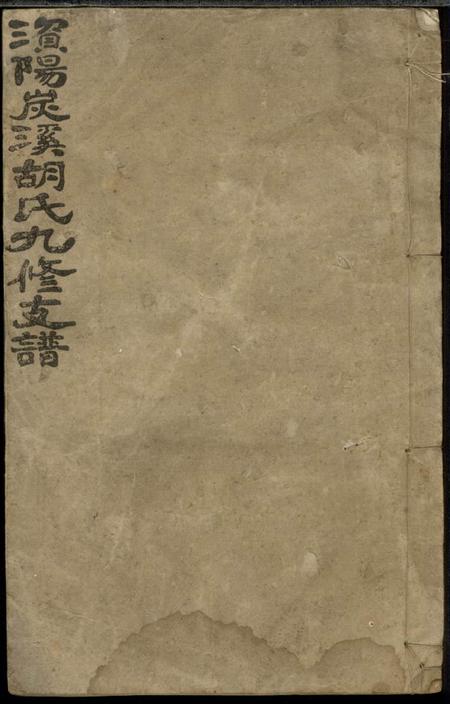 濱陽炭溪胡氏九修支譜